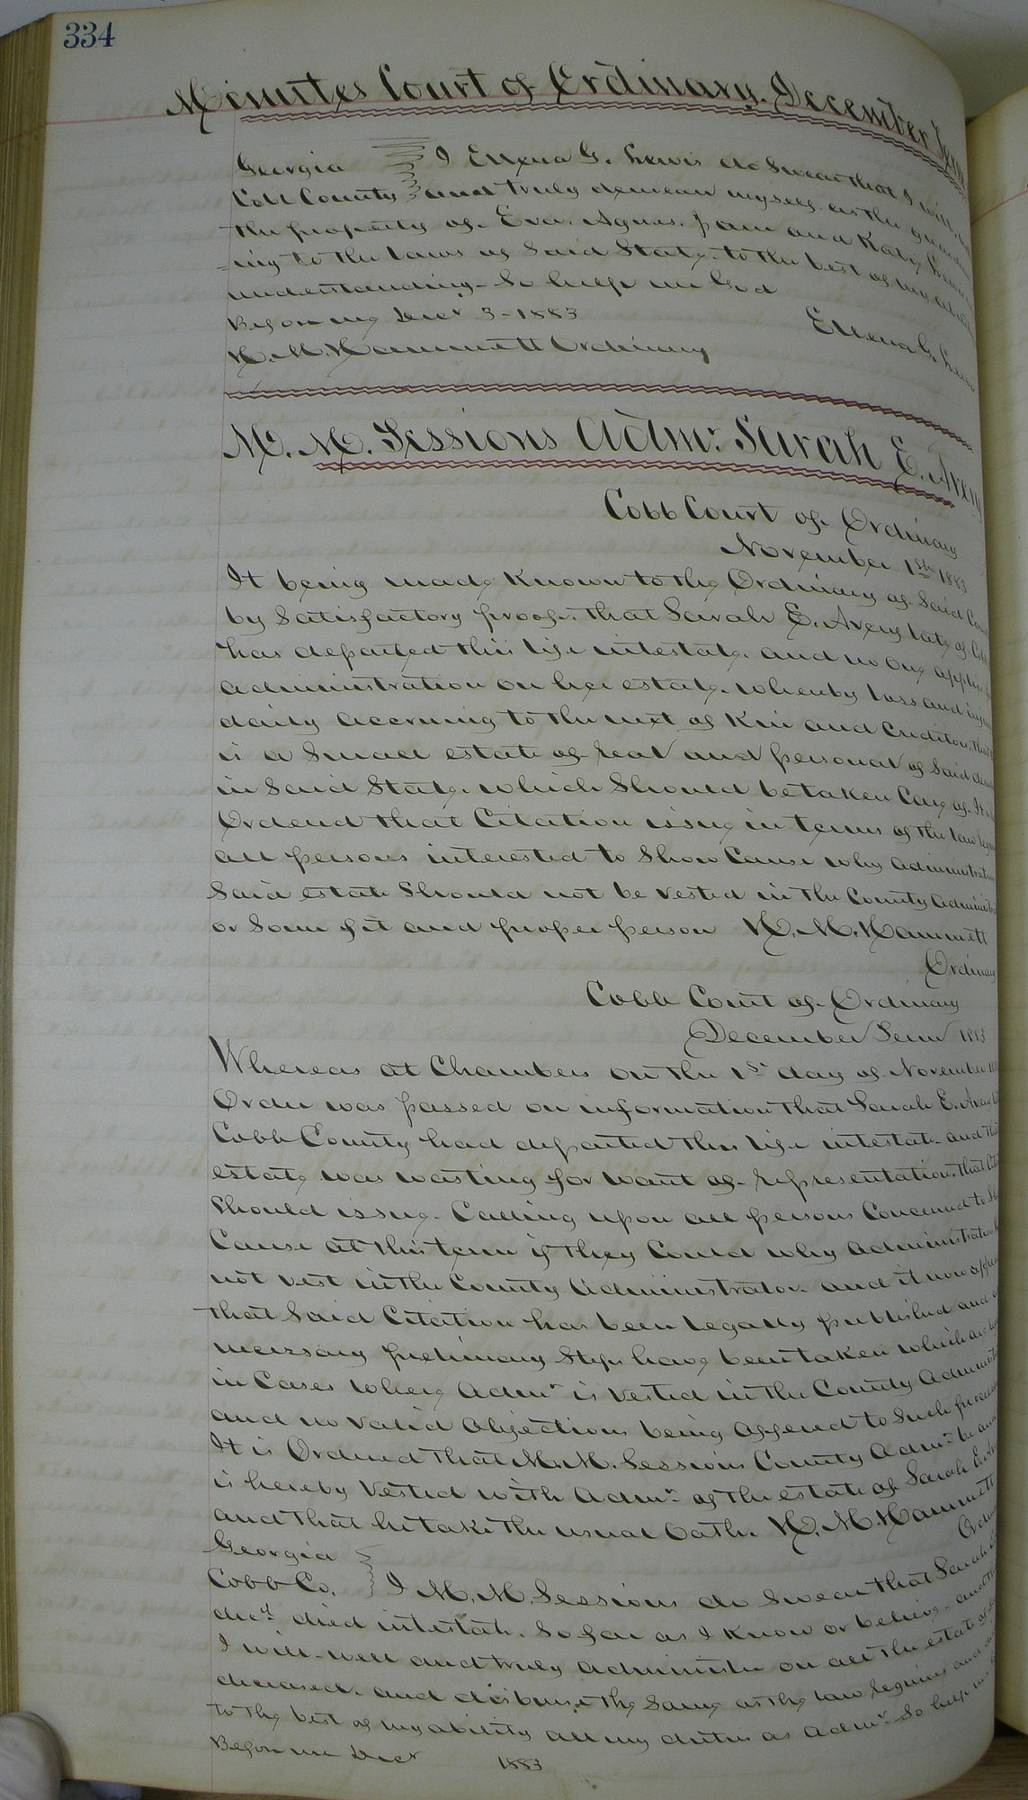 334
Minutes Court of Ordinary. December
Georgia I Ellena G. Lewis do Swear that I will
Cobb County and truly demean myself as the
the property of Eva. Agnes. and Katy
-ing to the laws of Said State to the best of my
understanding - So help me God
Before me Decr 3 - 1883 Ellena G.
H. M. Hammett Ordinary
M. M. Sessions Admr Sarah E. Avery
Cobb Court of Ordinary
November 1st 1883
It being made Known to the Ordinary of Said
by Satisfactory proof. that Sarah E. Avery late of
has departed this life intestate. and no One
administration on her estate. whereby loss and
daily accruing to the next of Kin and Creditors.
is a Small estate of real and personal of Said
in Said State. which Should be taken Care of. It is
Ordered that Citation issue in terms of the law
all persons interested to Show Cause why
Said estate Should not be vested in the County
or Some fit and proper person H. M. Hammett
Ordinary
Cobb Court of Ordinary
December Term 1883
Whereas at Chambers on the 1st day of November
Order was passed on information that Sarah E.
Cobb County had departed this life intestate and
estate was wasting for want of representation. that
Should issue. Calling upon all persons Concerned to
Cause at this term if they Could why
not vest in the County Administrator. and it now
that Said Citation has been legally published and
necessary preliminary Steps have been taken which
in Cases where Admr is vested in the County
and no valid objections being offered to Such
It is Ordered that M. M. Sessions County Admr be and
is hereby Vested with Admr of the estate of Sarah E.
and that he take the usual Oath. H. M. Hammett
Georgia
Cobb Co. I M. M. Sessions do Swear that Sarah
decd died intestate. So far as I Know or believe. and
I will well and truly administer on all the estate of
deceased. and disburse the Same as the law requires and
to the best of my ability all my duties as Admr So help me
Before me Decr 1883